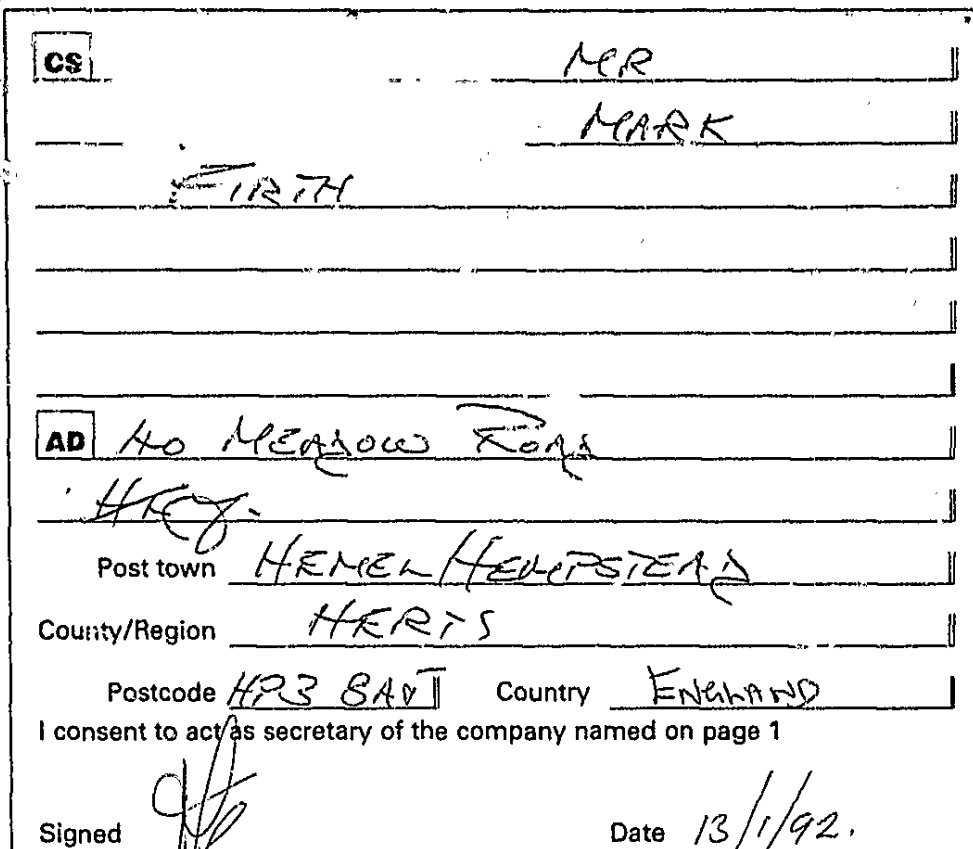 CS MR
MARK
FIRTH
AD 40 MEADOW ROAD
Post town HEMEL HEMPSTEAD
County/Region HERTS
Postcode HP3 Country ENGLAND
I consent to act as secretary of the company named on page 1
Signed Date 13/1/92.